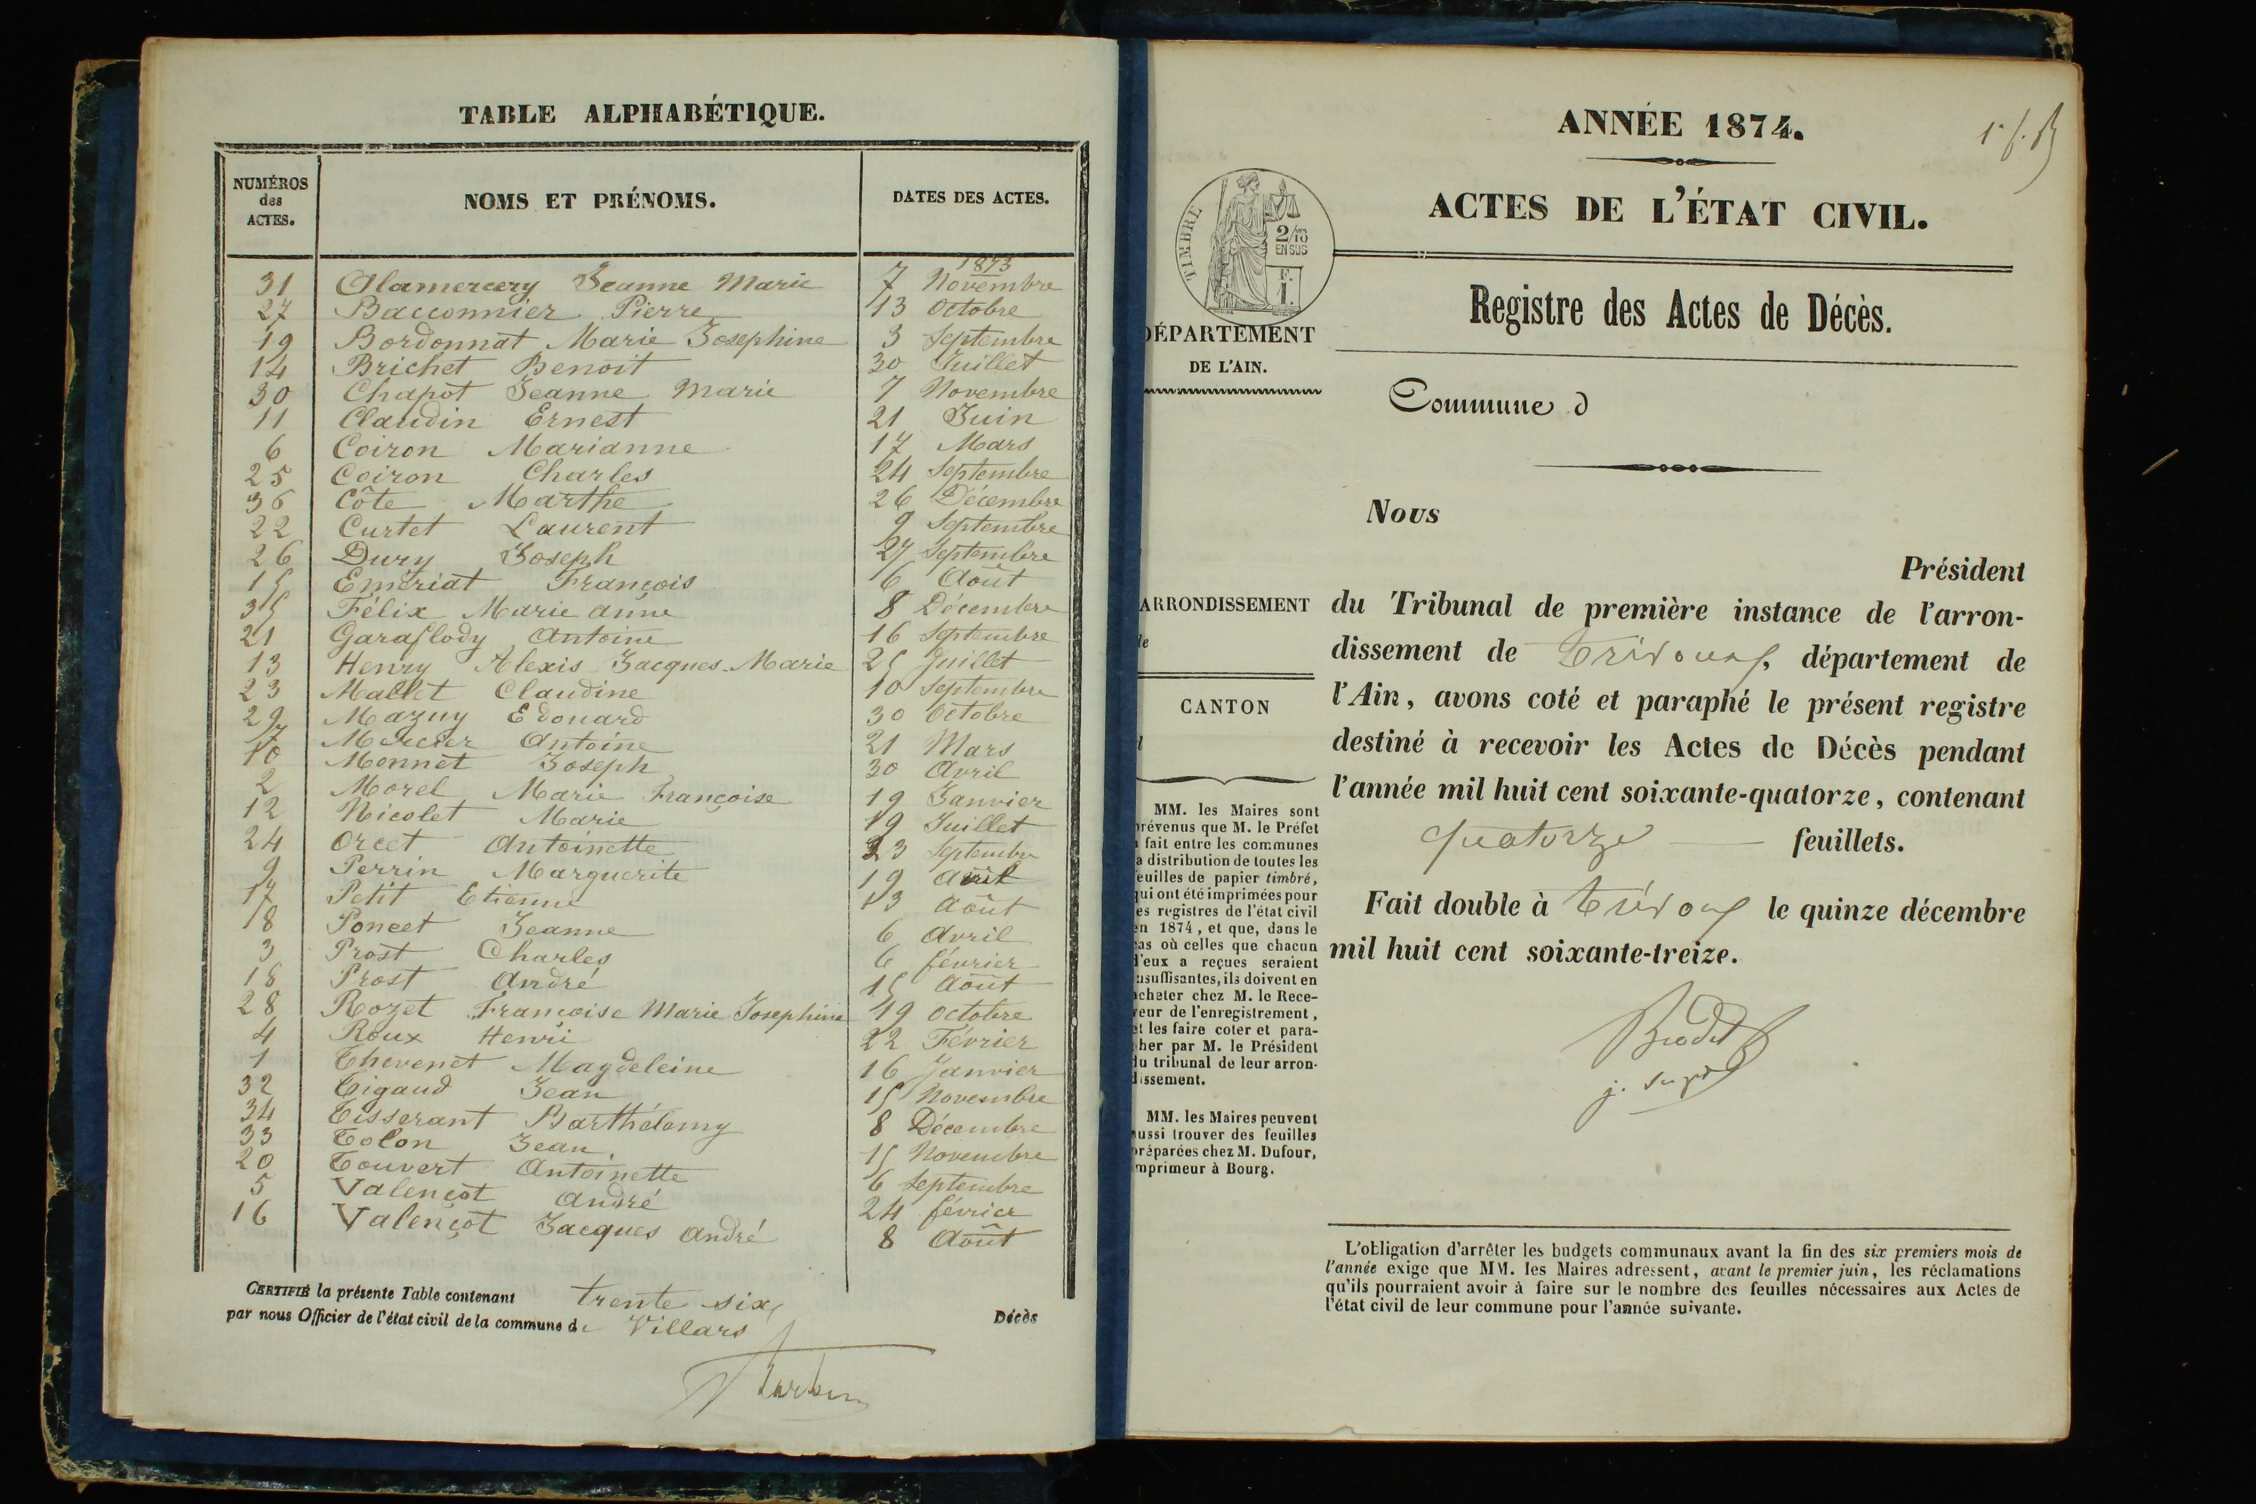 TABLE ALPHABÉTIQUE.
NUMÉROS des ACTES. NOMS ET PRÉNOMS. DATES DES ACTES.
1873
31 Alamercery Jeanne Marie 7 Novembre
27 Bacconnier Pierre 13 Octobre
19 Bordonnat Marie Josephine 3 Septembre
14 Brichet Benoit 30 Juillet
30 Chapot Jeanne Marie 7 Novembre
11 Claudin Ernest 21 Juin
6 Coiron Marianne 17 Mars
25 Coiron Charles 24 Septembre
36 Côte Marthe 26 Décembre
22 Curtet Laurent 9 Septembre
26 Dury Joseph 27 Septembre
15 Emeriat François 6 Août
35 Félix Marie anne 8 Décembre
21 Antoine 16 Septembre
13 Henry Alexis Jacques Marie 25 Juillet
23 Mallet Claudine 10 Septembre
29 Mazuy Edouard 30 Octobre
7 Mercier Antoine 21 Mars
10 Monnet Joseph 30 Avril
2 Morel Marie Françoise 19 Janvier
12 Nicolet Marie 19 Juillet
24 Orcet Antoinette 23 Septembre
9 Perrin Marguerite 19 Avril
17 Petit Etienne 13 Août
8 Poncet Jeanne 6 Avril
3 Prost Charles 6 février
18 Prost André 15 Août
28 Rozet Françoise Marie Josephine 19 Octobre
4 Roux Henri 22 Février
1 Thevenet Magdeleine 16 Janvier
32 Tigaud Jean 15 Novembre
34 Tisserant Barthélemy 8 Décembre
33 Tolon Jean 15 Novembre
20 Touvert Antoinette 6 Septembre
5 Valençot André 24 février
16 Valençot Jacques André 8 Août
CERTIFIÉ la présente Table contenant trente six Décès
par nous Officier de l'état civil de la commune de Villars
ANNÉE 1874.
ACTES DE L'ÉTAT CIVIL.
TIMBRE
2/10
EN SUS
F.
1.
DÉPARTEMENT
DE L'AIN.
Registre des Actes de Décès.
Commune d
Nous
Président
du Tribunal de première instance de l'arron-
dissement de Trévoux, département de
l'Ain, avons coté et paraphé le présent registre
destiné à recevoir les Actes de Décès pendant
l'année mil huit cent soixante-quatorze, contenant
quatorze feuillets.
Fait double à Trévoux le quinze décembre
mil huit cent soixante-treize.
ARRONDISSEMENT
de
CANTON
d
MM. les Maires sont
prévenus que M. le Préfet
a fait entre les communes
la distribution de toutes les
feuilles de papier timbré,
qui ont été imprimées pour
les registres de l'état civil
en 1874, et que, dans le
cas où celles que chacun
d'eux a reçues seraient
insuffisantes, ils doivent en
acheter chez M. le Rece-
veur de l'enregistrement,
et les faire coter et para-
pher par M. le Président
du tribunal de leur arron-
dissement.
MM. les Maires peuvent
aussi trouver des feuilles
préparées chez M. Dufour,
imprimeur à Bourg.
L'obligation d'arrêter les budgets communaux avant la fin des six premiers mois de
l'année exige que MM. les Maires adressent, avant le premier juin, les réclamations
qu'ils pourraient avoir à faire sur le nombre des feuilles nécessaires aux Actes de
l'état civil de leur commune pour l'année suivante.